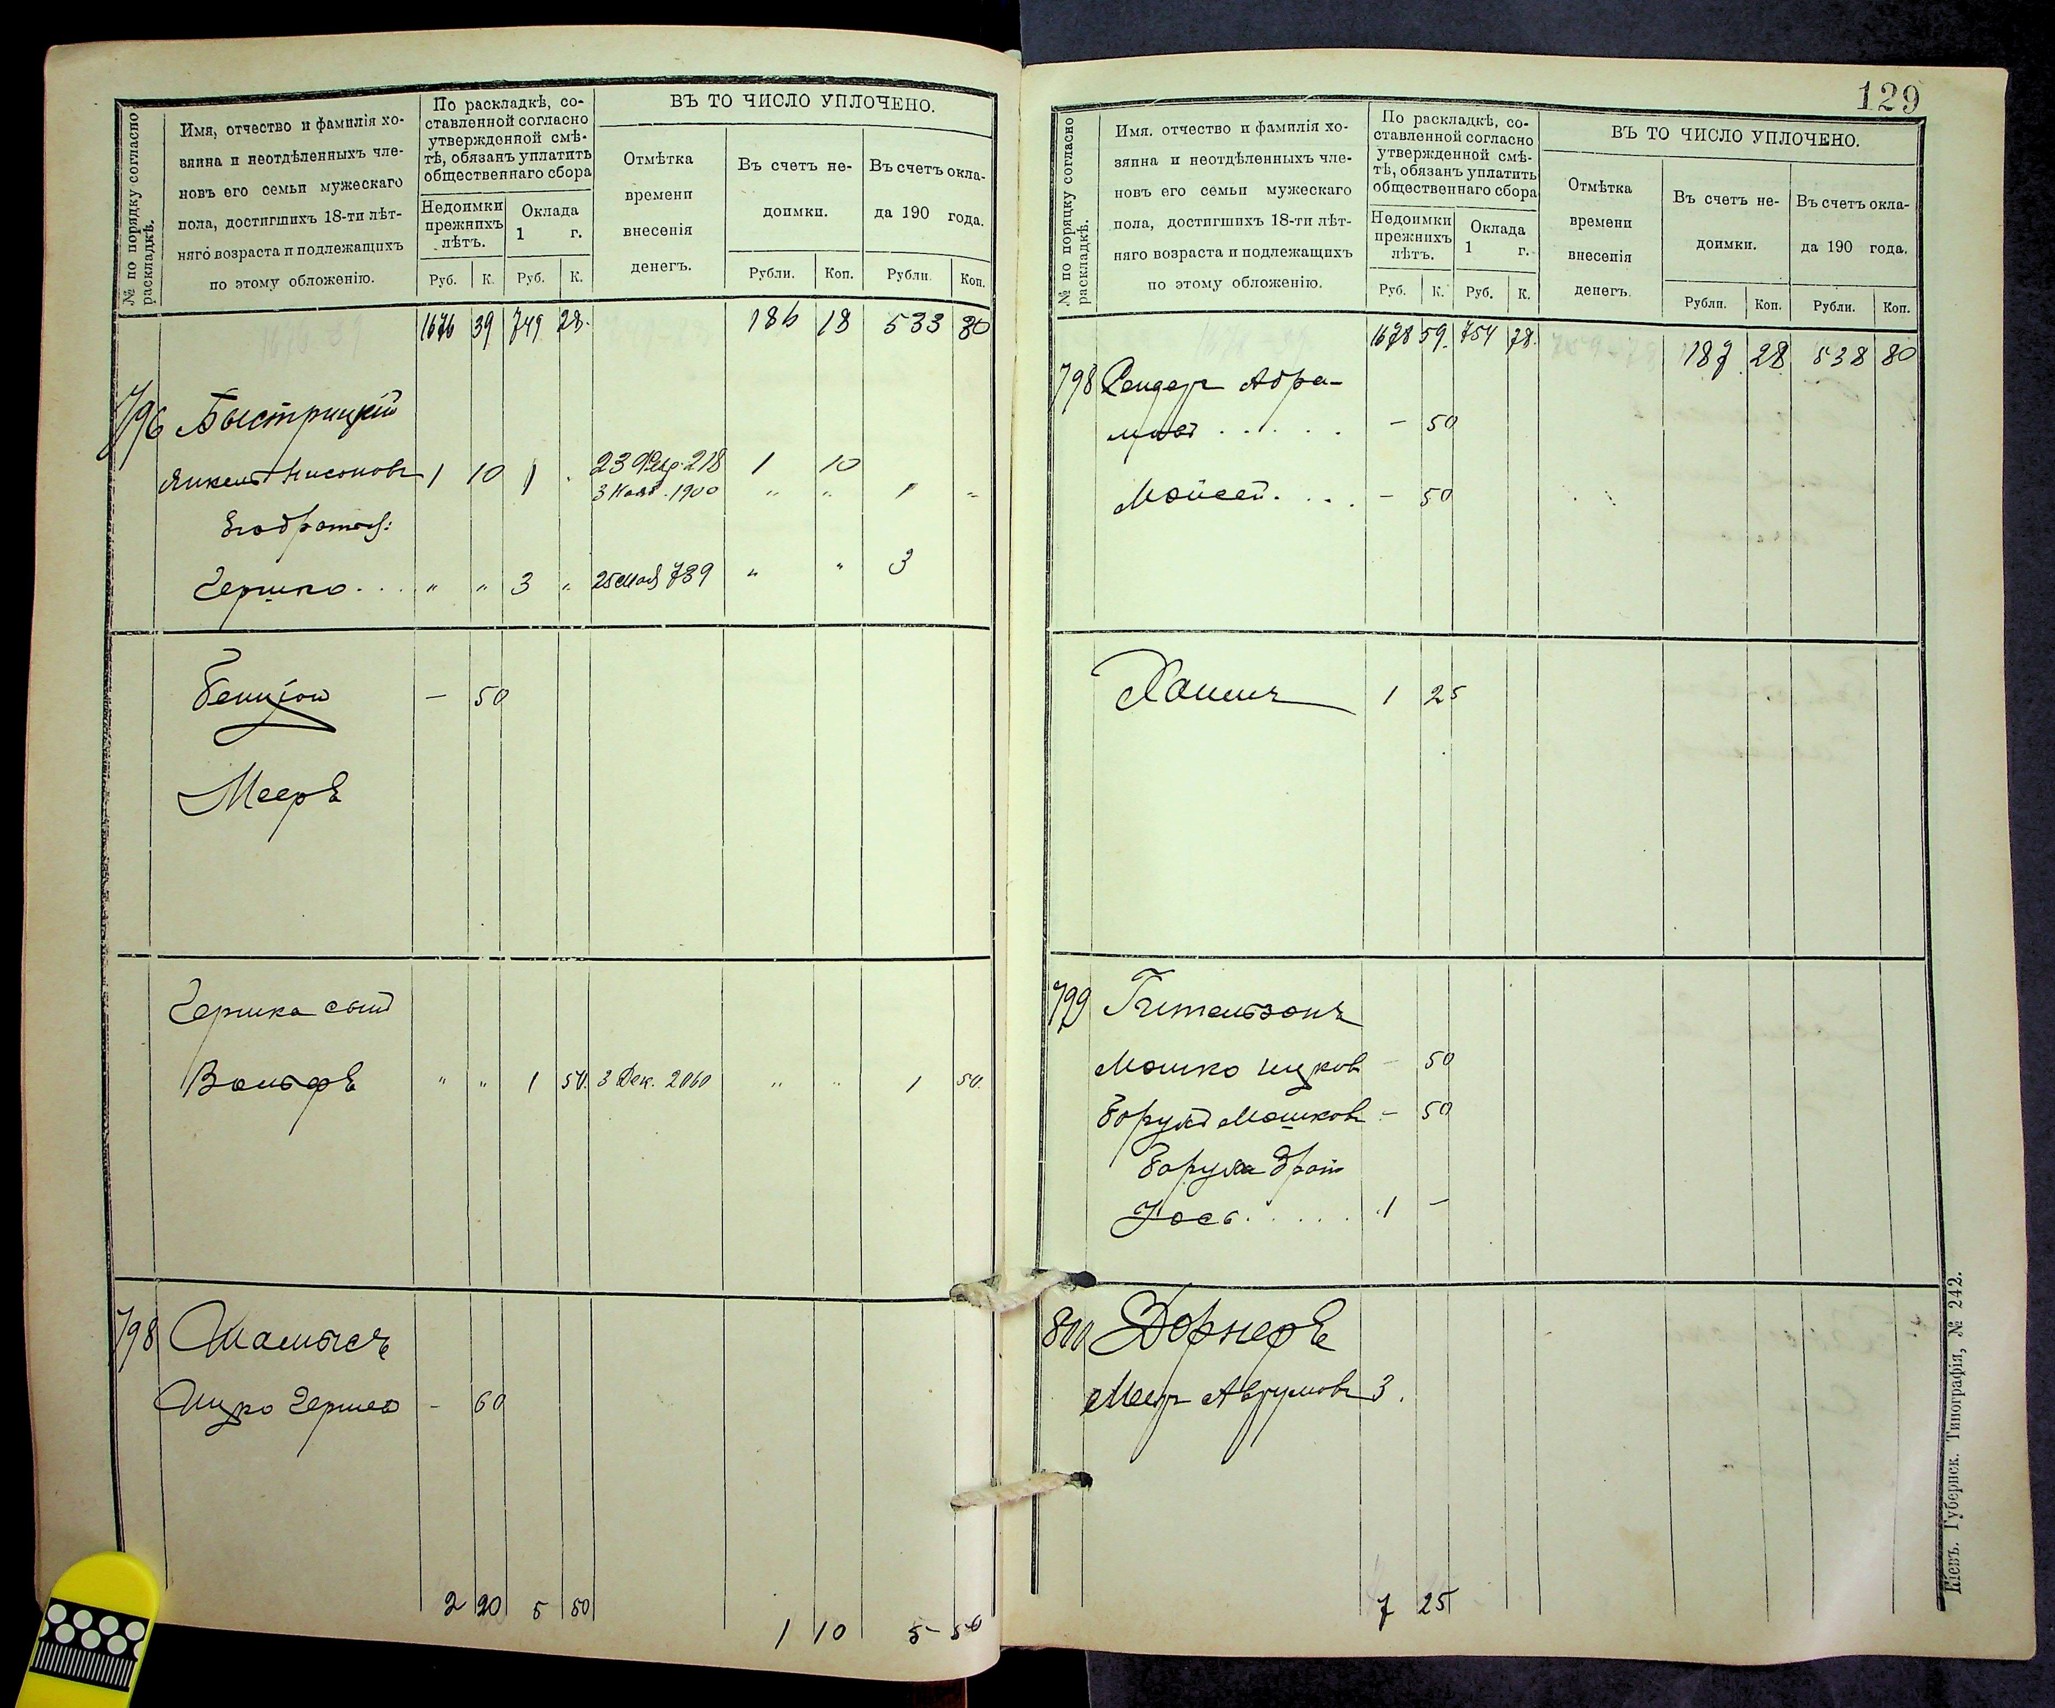 № по порядку согласно раскладкѣ.
Имя, отчество и фамилія хо-
зяина и неотдѣленныхъ чле-
новъ его семьи мужескаго
пола, достигшихъ 18-ти лѣт-
няго возраста и подлежащихъ
по этому обложенію.
По раскладкѣ, со-
ставленной согласно
утвержденной смѣ-
тѣ, обязанъ уплатить
общественнаго сбора
Недоимки
прежнихъ
лѣтъ.
Оклада
1 г.
Руб. К. Руб. К.
ВЪ ТО ЧИСЛО УПЛОЧЕНО.
Отмѣтка
времени
внесенія
денегъ.
Въ счетъ не-
доимки.
Въ счетъ окла-
да 190 года.
Рубли. Коп. Рубли. Коп.
1676 39 749 28. 186 18 533 30
796 Быстрицкій
Янкель Нисонов 1 10 1 . 23 Февр. 218 1 10
3 Нояб. 1900 " " 1 "
Его братья:
Гершко . . . " " 3 " 25 Мая 789 " " 3
Бенціон — 50
Мееръ
Гершка сынъ
Вольфъ " " 1 50. 3 Дек. 2060 " " 1 50.
798 Шамисъ
Ицко Гершко - 60
2 20 5 50 1 10 5 50
129
№ по порядку согласно раскладкѣ.
Имя, отчество и фамилія хо-
зяина и неотдѣленныхъ чле-
новъ его семьи мужескаго
пола, достигшихъ 18-ти лѣт-
няго возраста и подлежащихъ
по этому обложенію.
По раскладкѣ, со-
ставленной согласно
утвержденной смѣ-
тѣ, обязанъ уплатить
общественнаго сбора
Недоимки
прежнихъ
лѣтъ.
Оклада
1 г.
Руб. К. Руб. К.
ВЪ ТО ЧИСЛО УПЛОЧЕНО.
Отмѣтка
времени
внесенія
денегъ.
Въ счетъ не-
доимки.
Въ счетъ окла-
да 190 года.
Рубли. Коп. Рубли. Коп.
1678 59. 754 78. 187 28 538 80
798 Сендер Абра-
мов . . . . . - 50
Мойсей . . . - 50
Хаимъ 1 25
799 Гительзонъ
Мошко Ицков - 50
Борух Мошков - 50
Боруха брат
Иось . . . . . 1 —
800 Дорнеръ
Меер Аврумов 3 .
7 25
Кіевъ. Губернск. Типографія, № 242.